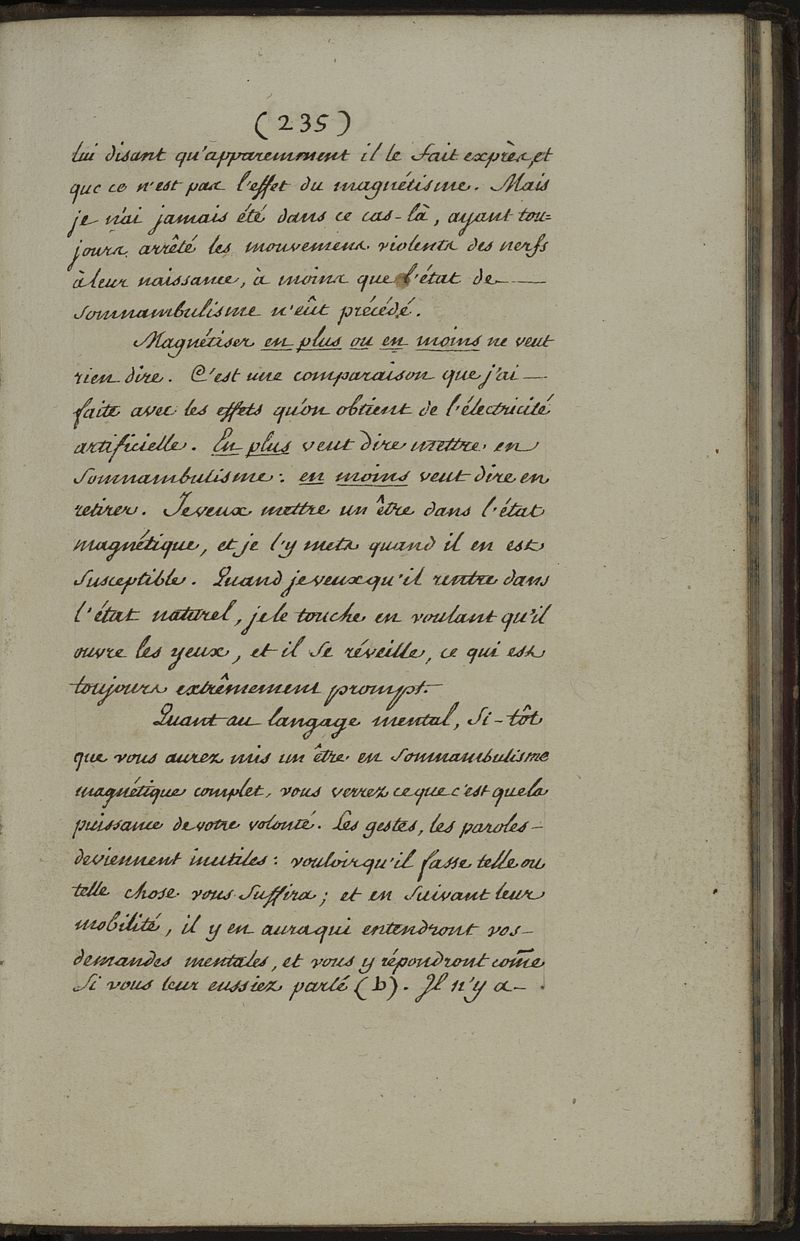 (235)
lui disant qu'apparemment il le fait exprès, et
que ce n'est pas l'effet du magnétisme. Mais
je n'ai jamais été dans ce cas-là, ayant tou=
jours arrêté les mouvemens violents des nerfs
à leur naissance, à moins que l'état de —
somnambulisme n'eût précédé.
Magnétiser en plus ou en moins ne veut
rien dire. C'est une comparaison que j'ai —
faite avec les effets qu'on obtient de l'électricité
artificielle. En plus veut dire mettre en
somnambulisme : en moins veut dire en
retirer. Je veux mettre un être dans l'état
magnétique, et je l'y mets quand il en est
susceptible. Quand je veux qu'il rentre dans
l'état naturel, je le touche en voulant qu'il
ouvre les yeux, et il se réveille, ce qui est
toujours extrêmement prompt.
Quant au langage mental, si-tôt
que vous aurez mis un être en somnambulisme
magnétique complet, vous verrez ce que c'est que la
puissance de votre volonté. Les gestes, les paroles —
deviennent inutiles : vouloir qu'il fasse telle ou
telle chose vous suffira ; et en suivant leur
mobilité, il y en aura qui entendront vos —
demandes mentales, et vous y répondront com̅e
si vous leur eussiez parlé (b). Il n'y a —